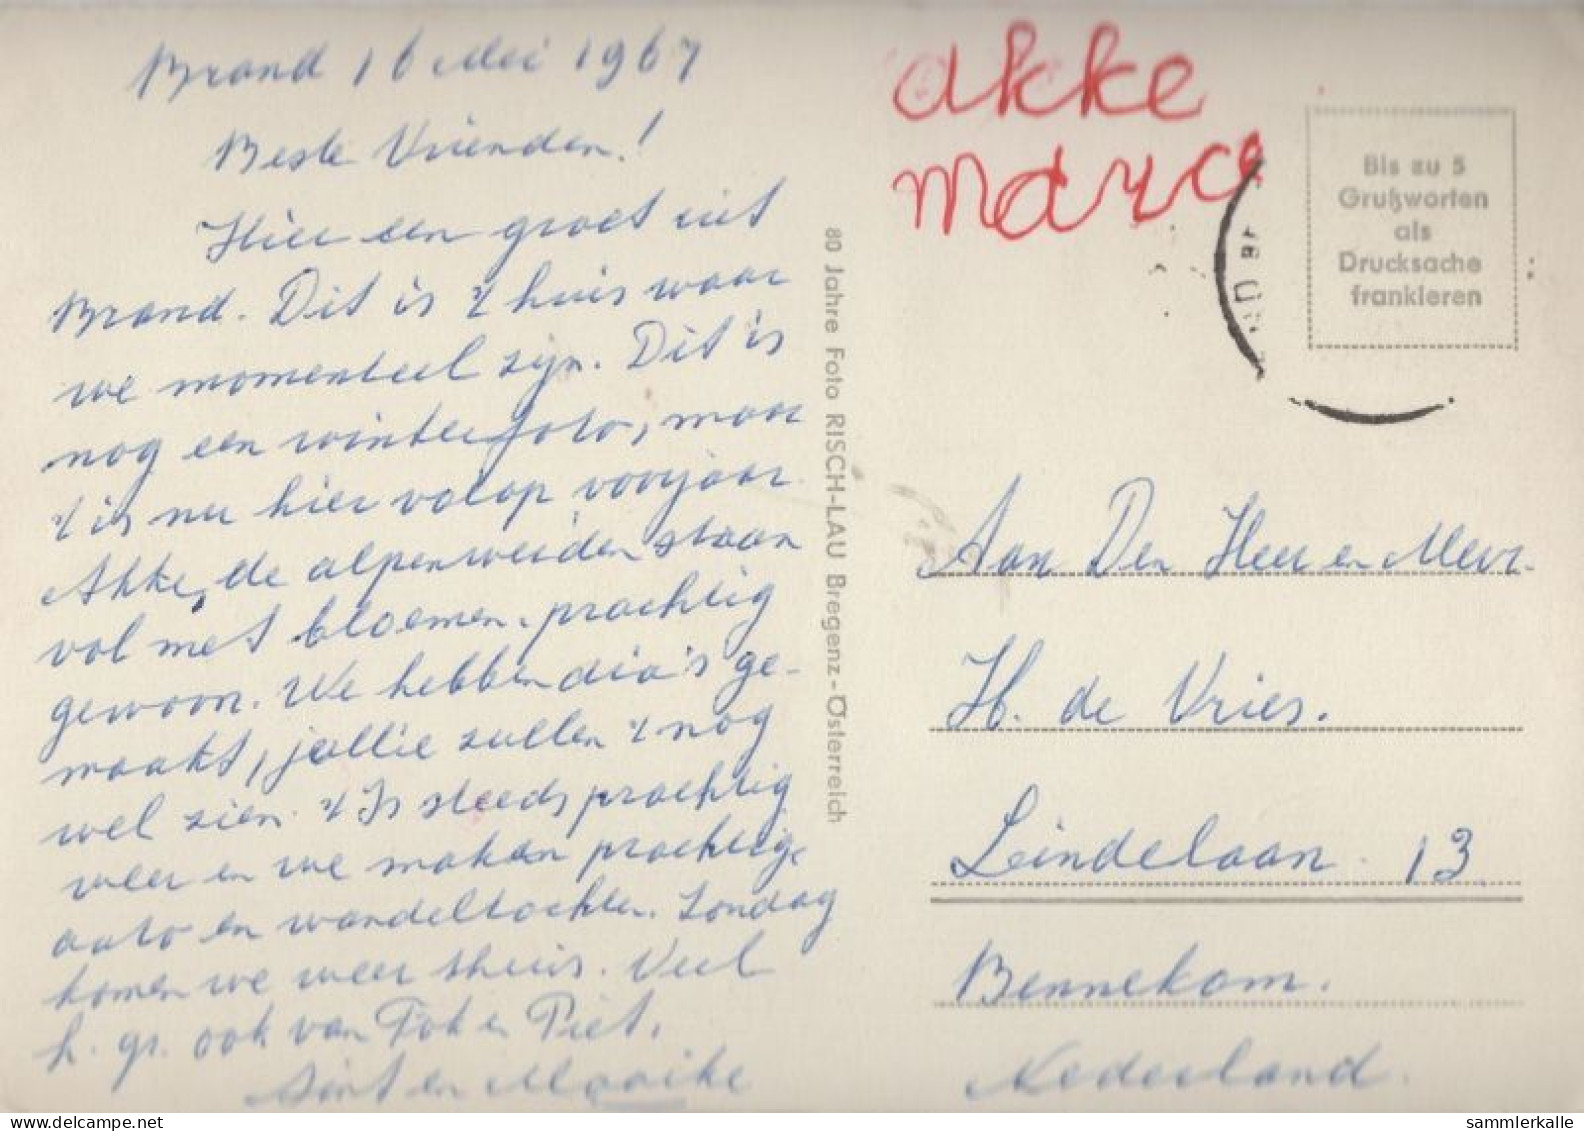 Brand 16 Mei 1967
Beste Vrienden!
Hier een groet uit
Brand. Dit is 't huis waar
we momenteel zijn. Dit is
nog een winterfoto, maar
't is nu hier volop voorjaar.
Akke, de alpenweiden staan
vol met bloemen. prachtig
gewoon. We hebben dia's ge-
maakt, jullie zullen 't nog
wel zien. 't Is steeds prachtig
weer en we maken prachtige
auto en wandeltochten. Zondag
komen we weer thuis. Veel
h. gr. ook van Fok en Piet.
en Maaike
80 Jahre Foto RISCH-LAU Bregenz-Österreich
akke
marce
Bis zu 5
Grußworten
als
Drucksache
frankieren
Aan Den Heer en Mevr.
H. de Vries.
Leindelaan 13.
Bennekom.
Nederland.
sammlerkalle
www.delcampe.net